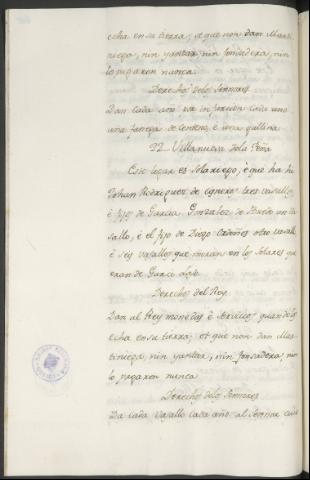 echa en su tierra; et que non dan Marti
niega, nin yantar, nin fonsadera, nin
lo pagaron nunca.
Derecho delos Sennores
Dan cada año por infurcion cada uno
una fanega de Centeno, è una gallina
22 Villanueva dela Peña
Este logar es solariego, è que ha hi
Johan Rodriguez de Cisneros tres vasallos
è fijo de Garcia Gonzalez de un va
sallo, è el fijo de Diego Ordoñes otro vasallo
è seis vasallos que moran en los Solares que
eran de Garci
Derecho del Rey
Dan al Rey monedas è servicios quando los
echa en su tierra; et que non dan Mar
tiniega, nin yantar, nin fonsadera, nin
lo pagaron nunca
Derecho delos Sennores
Da cada vasallo cada año al Sennor cuia